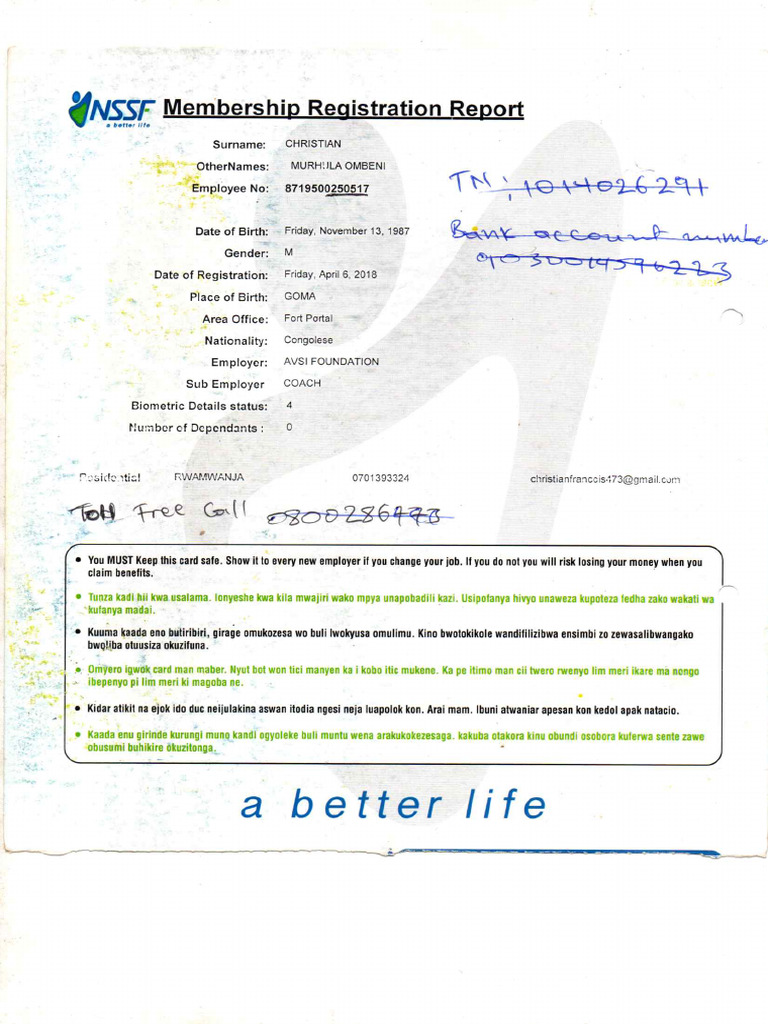 NSSF
a better life
Membership Registration Report
Surname: CHRISTIAN
OtherNames: MURHULA OMBENI
Employee No: 8719500250517
TN: 1014026291
Bank account numbe
Date of Birth: Friday, November 13, 1987
Gender: M
Date of Registration: Friday, April 6, 2018
Place of Birth: GOMA
Area Office: Fort Portal
Nationality: Congolese
Employer: AVSI FOUNDATION
Sub Employer COACH
Biometric Details status: 4
Number of Dependants : 0
Residential RWAMWANJA 0701393324 christianfrancois473@gmail.com
Toll Free Call
• You MUST Keep this card safe. Show it to every new employer if you change your job. If you do not you will risk losing your money when you
claim benefits.
• Tunza kadi hii kwa usalama. Ionyeshe kwa kila mwajiri wako mpya unapobadili kazi. Usipofanya hivyo unaweza kupoteza fedha zako wakati wa
kufanya madai.
• Kuuma kaada eno butiribiri, girage omukozesa wo buli lwokyusa omulimu. Kino bwotokikole wandifilizibwa ensimbi zo zewasalibwangako
bwoliba otuusiza okuzifuna.
• Omyero igwok card man maber. Nyut bot won tici manyen ka i kobo itic mukene. Ka pe itimo man cii twero rwenyo lim meri ikare ma nongo
ibepenyo pi lim meri ki magoba ne.
• Kidar atikit na ejok ido duc neijulakina aswan itodia ngesi neja luapolok kon. Arai mam. Ibuni atwaniar apesan kon kedol apak natacio.
• Kaada enu girinde kurungi muno kandi ogyoleke buli muntu wena arakukokezesaga. kakuba otakora kinu obundi osobora kuferwa sente zawe
obusumi buhikire okuzitonga.
a better life